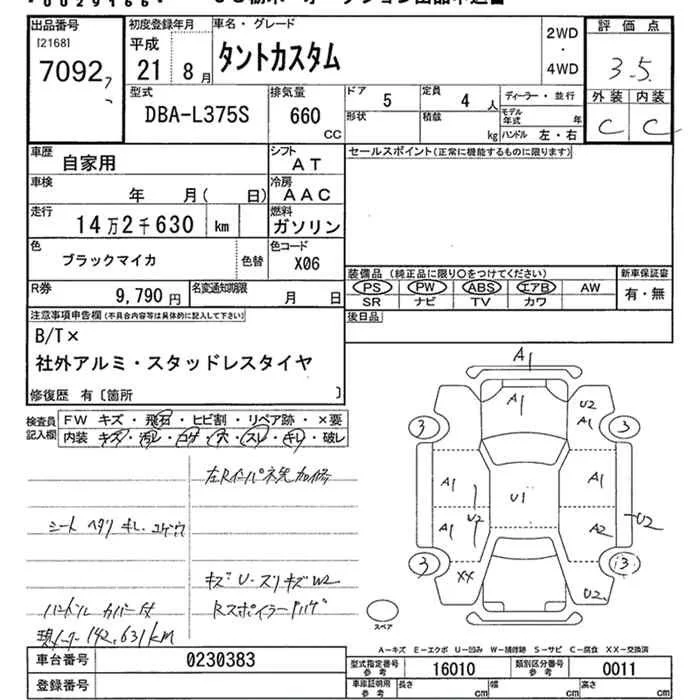 出品番号
[2168]
7092
初度登録年月
平成
21 8月
車名・グレード
タントカスタム
2WD
・
4WD
評価点
3.5
外装 内装
C C
型式
DBA-L375S
排気量
660
CC
ドア
5
定員
4人
形状
積載
kg
ディーラー・並行
モデル年式 年
ハンドル 左・右
車歴
自家用
シフト
AT
セールスポイント(正常に機能するものに限ります)
車検
年 月( 日)
冷房
AAC
走行
14万2千630 km
燃料
ガソリン
色
ブラックマイカ
色替
色コード
X06
装備品 (純正品に限り○をつけてください)
新車保証書
PS PW ABS エアB AW
有・無
SR ナビ TV カワ
R券
9,790円
名変通知期限
月 日
後日品
注意事項申告欄(不具合内容等は具体的に記入して下さい)
B/T×
社外アルミ・スタッドレスタイヤ
修復歴 有〔箇所 〕
検査員記入欄
FW キズ・飛石・ヒビ割・リペア跡・×要
内装 キズ・汚レ・コゲ・穴・スレ・キレ・破レ
シート ヘタリ キレ.コゲ穴
ハンドル カバー付
現メーター 142,631km
キズ U・スリキズ W2
Rスポイラー ハゲ
A1
A1
U2
A1
3
3
A1
A1
U1
U2
A1
A2
U2
3
3
XX
U2
スペア
A-キズ E-エクボ U-凹み W-補修跡 S-サビ C-腐食 XX-交換済
車台番号
0230383
型式指定番号
参考
16010
類別区分番号
参考
0011
登録番号
車庫証明用
参考
長さ cm
幅 cm
高さ cm